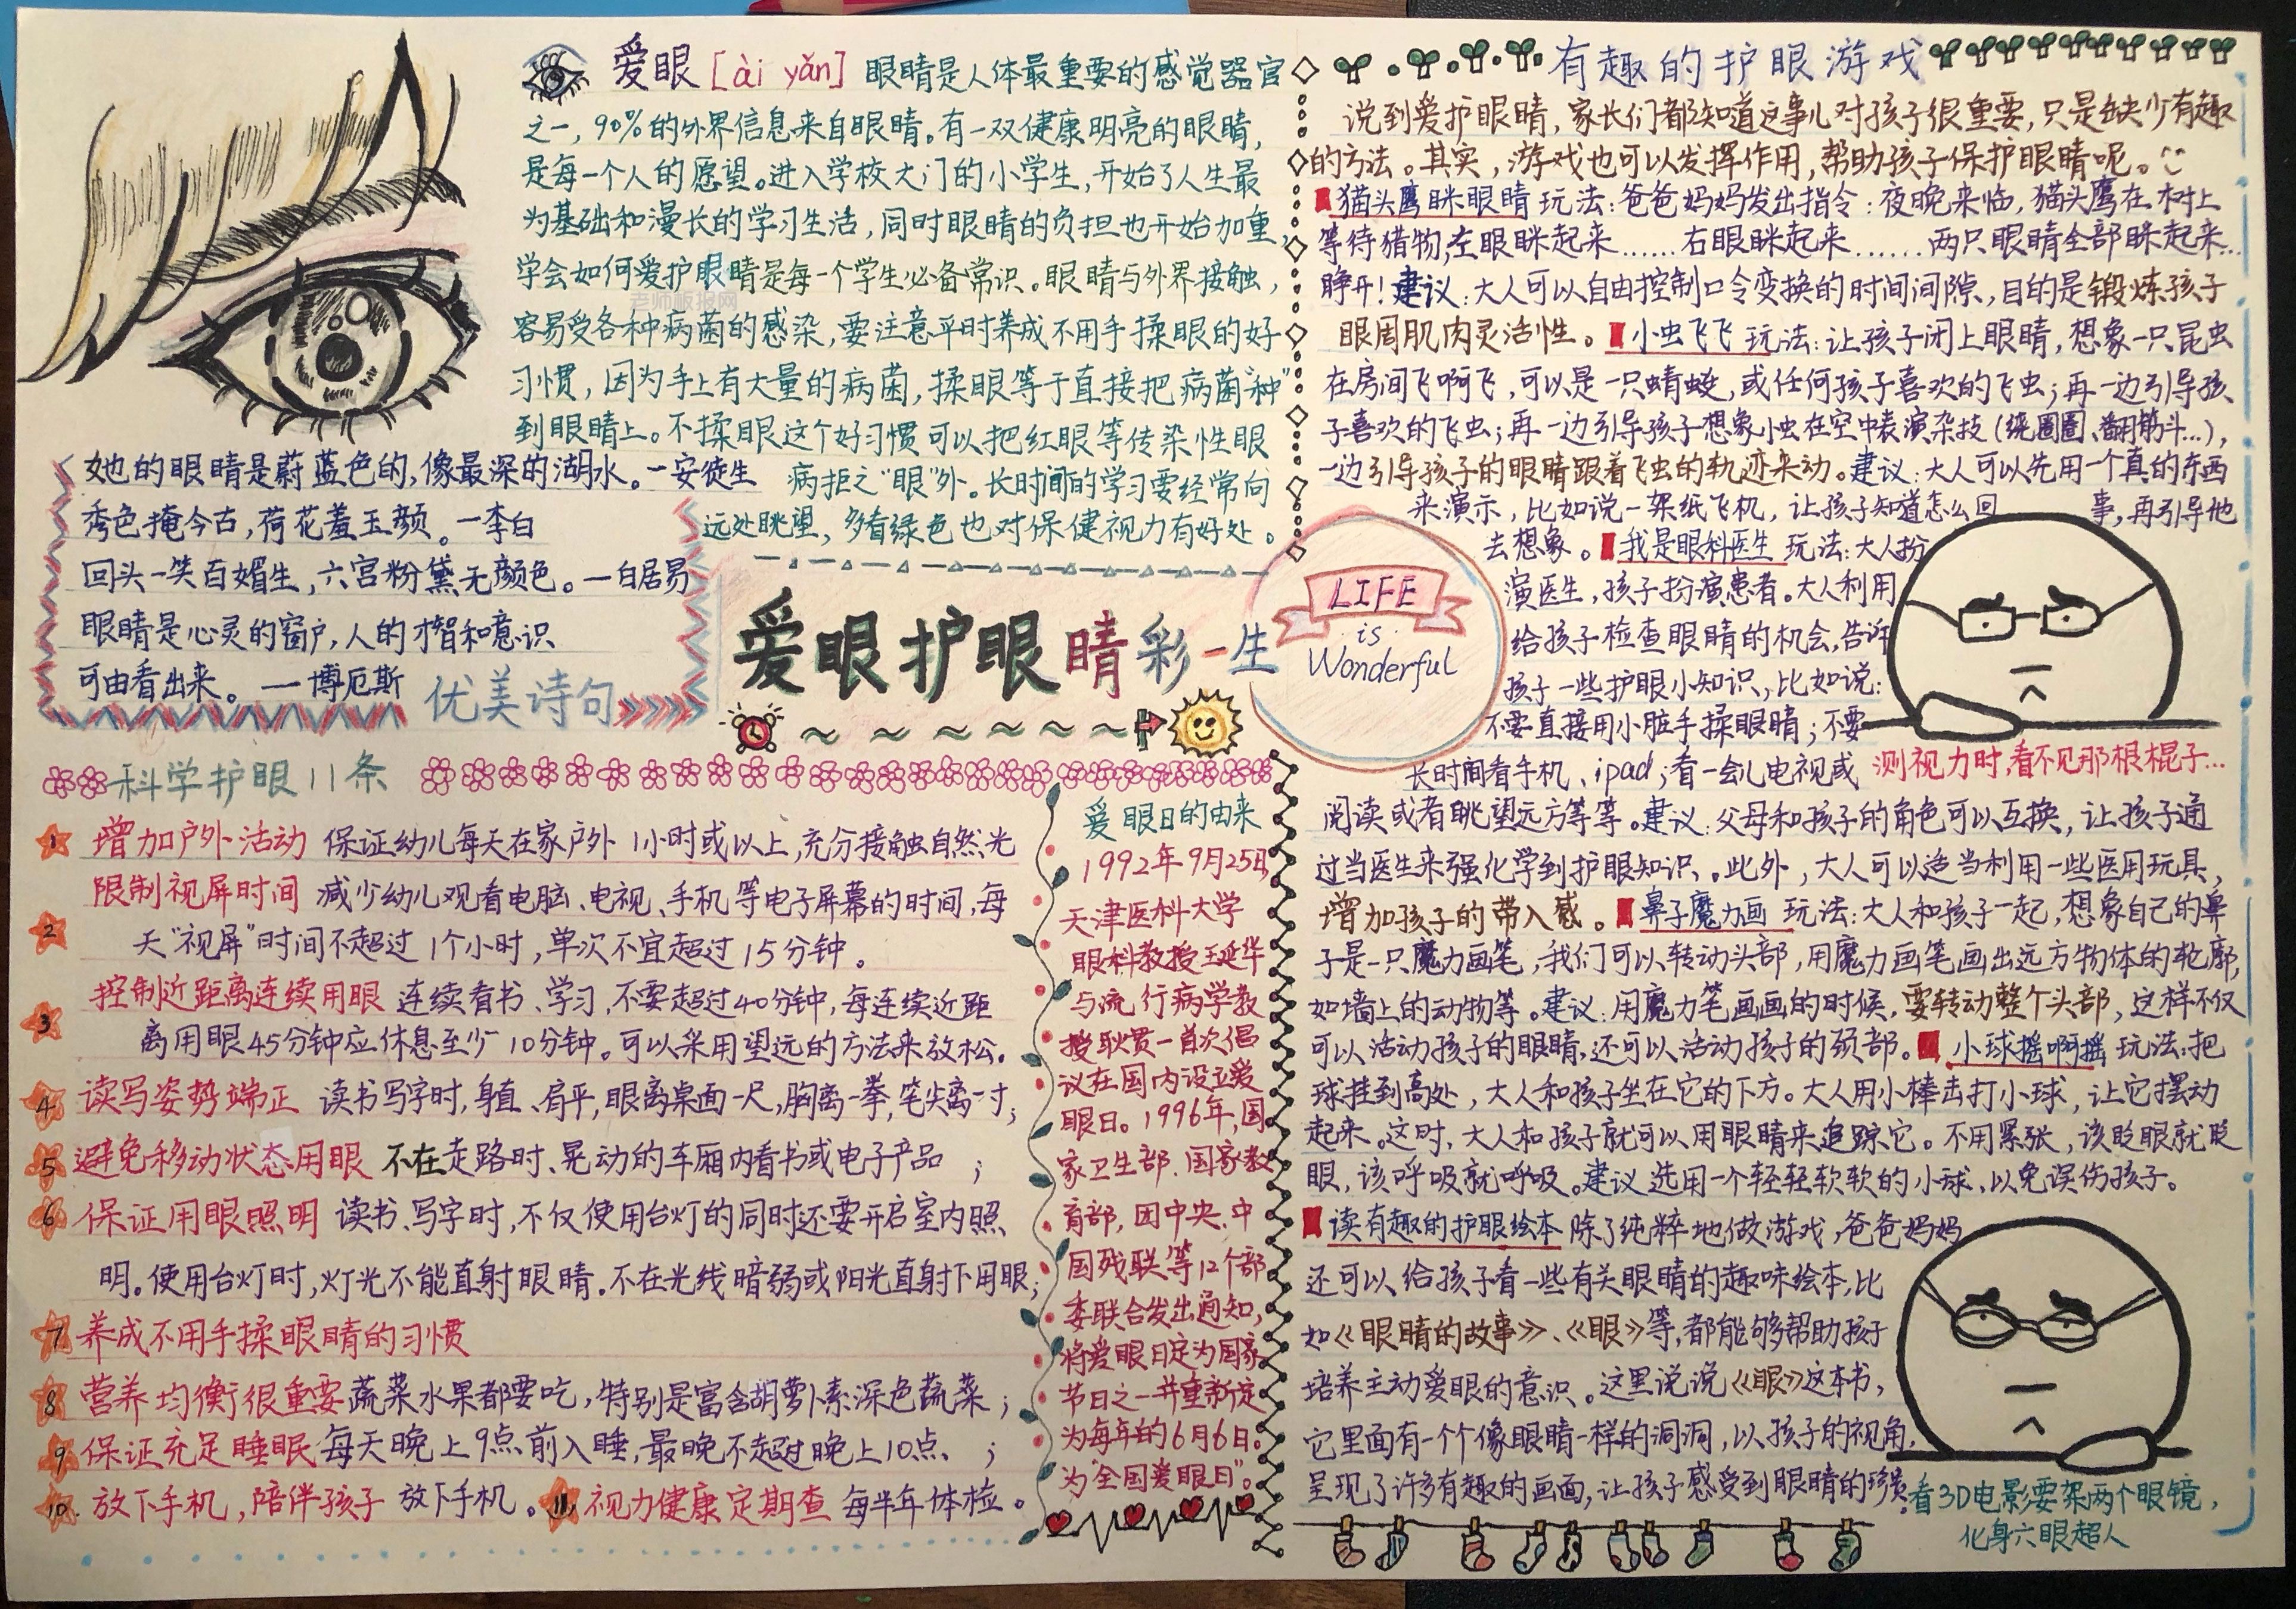 爱眼[ài yǎn] 眼睛是人体最重要的感觉器官
之一，90%的外界信息来自眼睛。有一双健康明亮的眼睛，
是每一个人的愿望。进入学校大门的小学生，开始了人生最
为基础和漫长的学习生活，同时眼睛的负担也开始加重，
学会如何爱护眼睛是每一个学生必备常识。眼睛与外界接触，
容易受各种病菌的感染，要注意平时养成不用手揉眼的好
习惯，因为手上有大量的病菌，揉眼等于直接把病菌"种"
到眼睛上。不揉眼这个好习惯可以把红眼等传染性眼
病拒之"眼"外。长时间的学习要经常向
远处眺望，多看绿色也对保健视力有好处。
老师板报网
她的眼睛是蔚蓝色的，像最深的湖水。一安徒生
秀色掩今古，荷花羞玉颜。一李白
回头一笑百媚生，六宫粉黛无颜色。一白居易
眼睛是心灵的窗户，人的才智和意识
可由看出来。一博厄斯
优美诗句
爱眼护眼睛彩一生
LIFE
is
Wonderful
科学护眼11条
1 增加户外活动 保证幼儿每天在家户外1小时或以上，充分接触自然光
2 限制视屏时间 减少幼儿观看电脑、电视、手机等电子屏幕的时间，每
天"视屏"时间不超过1个小时，单次不宜超过15分钟。
3 控制近距离连续用眼 连续看书、学习，不要超过40分钟，每连续近距
离用眼45分钟应休息至少10分钟。可以采用望远的方法来放松。
4 读写姿势端正 读书写字时，身直、肩平，眼离桌面一尺，胸离一拳，笔尖离一寸；
5 避免移动状态用眼 不在走路时、晃动的车厢内看书或电子产品；
6 保证用眼照明 读书、写字时，不仅使用台灯的同时还要开启室内照
明。使用台灯时，灯光不能直射眼睛。不在光线暗弱或阳光直射下用眼；
7 养成不用手揉眼睛的习惯
8 营养均衡很重要蔬菜水果都要吃，特别是富含胡萝卜素深色蔬菜；
9 保证充足睡眠每天晚上9点前入睡，最晚不超过晚上10点、；
10. 放下手机，陪伴孩子 放下手机。11 视力健康定期查 每半年体检。
爱眼日的由来
1992年9月25日，
天津医科大学
眼科教授王延华
与流行病学教
授耿贯一首次倡
议在国内设立爱
眼日。1996年，国
家卫生部、国家教
育部，团中央、中
国残联等12个部
委联合发出通知，
将爱眼日定为国家
节日之一并重新定
为每年的6月6日。
为"全国爱眼日"。
有趣的护眼游戏
说到爱护眼睛，家长们都知道这事儿对孩子很重要，只是缺少有趣
的方法。其实，游戏也可以发挥作用，帮助孩子保护眼睛呢。
猫头鹰眯眼睛 玩法：爸爸妈妈发出指令：夜晚来临，猫头鹰在树上
等待猎物，左眼眯起来……右眼眯起来……两只眼睛全部眯起来…
睁开！建议：大人可以自由控制口令变换的时间间隙，目的是锻炼孩子
眼周肌肉灵活性。小虫飞飞 玩法：让孩子闭上眼睛，想象一只昆虫
在房间飞啊飞，可以是一只蜻蜓，或任何孩子喜欢的飞虫；再一边引导孩
子喜欢的飞虫；再一边引导孩子想象小虫在空中表演杂技（绕圈圈、翻筋斗…），
一边引导孩子的眼睛跟着飞虫的轨迹来动。建议：大人可以先用一个真的东西
来演示，比如说一架纸飞机，让孩子知道怎么回事，再引导他
去想象。我是眼科医生 玩法：大人扮
演医生，孩子扮演患者。大人利用
给孩子检查眼睛的机会，告诉
孩子一些护眼小知识，比如说：
不要直接用小脏手揉眼睛；不要
长时间看手机、ipad；看一会儿电视或
测视力时，看不见那根棍子…
阅读或者眺望远方等等。建议：父母和孩子的角色可以互换，让孩子通
过当医生来强化学到护眼知识。此外，大人可以适当利用一些医用玩具，
增加孩子的带入感。鼻子魔力画 玩法：大人和孩子一起，想象自己的鼻
子是一只魔力画笔，我们可以转动头部，用魔力画笔画出远方物体的轮廓，
如墙上的动物等。建议：用魔力笔画画的时候，要转动整个头部，这样不仅
可以活动孩子的眼睛，还可以活动孩子的颈部。小球摇啊摇 玩法：把
球挂到高处，大人和孩子坐在它的下方。大人用小棒击打小球，让它摆动
起来。这时，大人和孩子就可以用眼睛来追踪它。不用紧张，该眨眼就眨
眼，该呼吸就呼吸。建议选用一个轻轻软软的小球、以免误伤孩子。
读有趣的护眼绘本 除了纯粹地做游戏，爸爸妈妈
还可以给孩子看一些有关眼睛的趣味绘本，比
如《眼睛的故事》、《眼》等，都能够帮助孩子
培养主动爱眼的意识。这里说说《眼》这本书，
它里面有一个个像眼睛一样的洞洞，以孩子的视角，
呈现了许多有趣的画面，让孩子感受到眼睛的珍贵。
看3D电影要架两个眼镜，
化身六眼超人